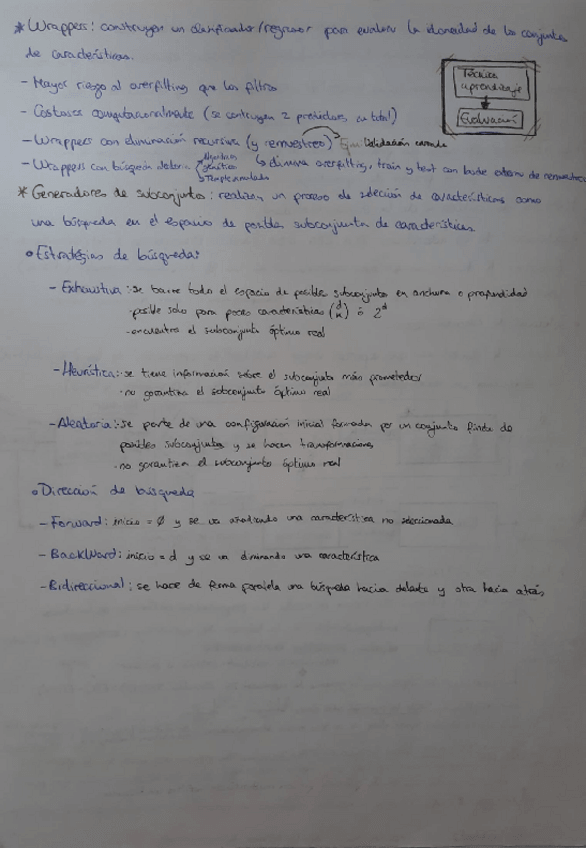 * Wrappers: construyen un clasificador/regresor para evaluar la idoneidad de los conjuntos
de características.
- Mayor riesgo al overfitting que los filtros
- Costosos computacionalmente (se contruyen 2 predictores en total)
- Wrappers con eliminación recursiva (y remuestreo) Ejm: Validación cruzada
- Wrappers con búsqueda aleatoria Algoritmos genéticos Temple simulado ↳ disminuye overfitting, train y test con bucle externo de remuestreo
Técnica aprendizaje
Evaluación
* Generadores de subconjuntos: realizan un proceso de selección de características como
una búsqueda en el espacio de posibles subconjuntos de características.
• Estratégias de búsqueda:
- Exhaustiva: · se barre todo el espacio de posibles subconjuntos en anchura o profundidad
· posible solo para pocas características (d m) ó 2^d
· encuentra el subconjunto óptimo real
- Heurística: · se tiene información sobre el subconjunto más prometedor
· no garantiza el subconjunto óptimo real
- Aleatoria: · se parte de una configuración inicial formada por un conjunto finito de
posibles subconjuntos y se hacen transformaciones
· no garantiza el subconjunto óptimo real
• Dirección de búsqueda
- Forward: inicio = Ø y se va añadiendo una característica no seleccionada
- BackWard: inicio = d y se va eliminando una característica
- Bidireccional: se hace de forma paralela una búsqueda hacia delante y otra hacia atrás